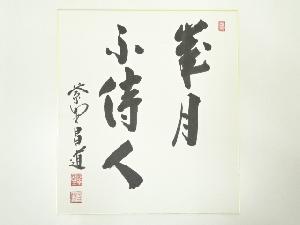 歳月
不待人
紫野昌道